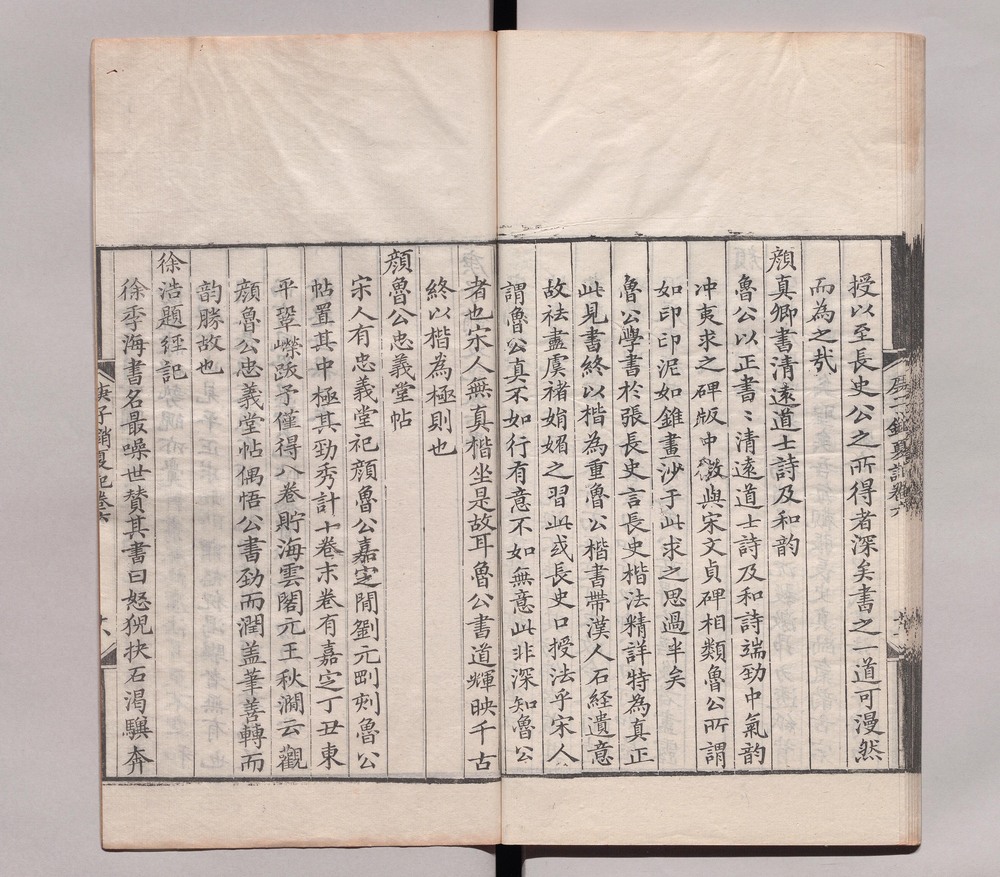 授以至長史公之所得者深矣書之一道可漫然
而為之㢤
顔真卿書清遠道士詩及和韵
魯公以正書〻清遠道士詩及和詩端勁中氣韵
冲夷求之碑版中㣲與宋文貞碑相類魯公所謂
如印印泥如錐畫沙于此求之思過半矣
魯公學書於張長史言長史楷法精詳特為真正
此見書終以楷為重魯公楷書帶漢人石經遺意
故祛盡虞褚娟媚之習此或長史口授法乎宋人
謂魯公真不如行有意不如無意此非深知魯公
者也宋人無真楷坐是故耳魯公書道輝映千古
終以楷為極則也
顔魯公忠義堂帖
宋人有忠義堂祀顔魯公嘉定間劉元剛刻魯公
帖置其中極其勁秀計十卷末卷有嘉定丁丑東
平鞏嶸跋予僅得八卷貯海雲閣元王秋澗云觀
顔魯公忠義堂帖偶悟公書勁而潤盖筆善轉而
韵勝故也
徐浩題經記
徐季海書名最噪世賛其書曰怒猊抉石渴驥奔
庚子銷夏記卷六